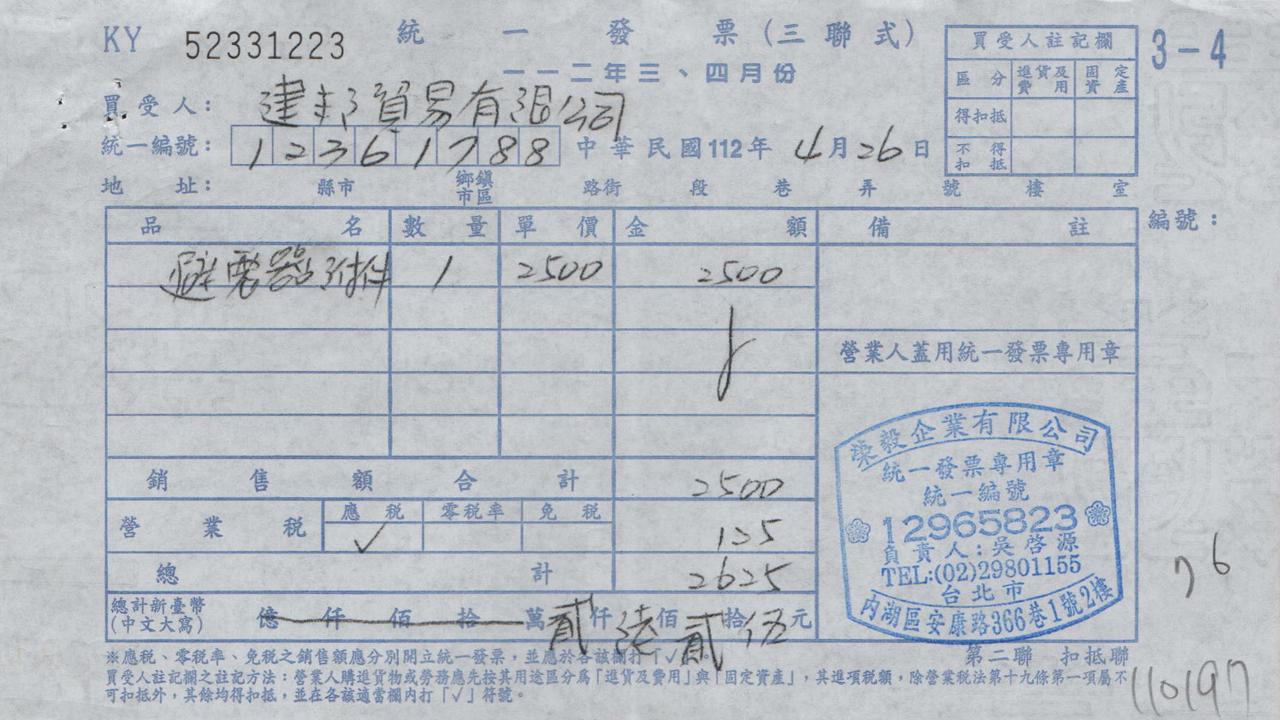 KY 52331223 統一發票(三聯式)
一一二年三、四月份
買受人註記欄 3-4
區分 進貨及費用 固定資產
得扣抵
不得扣抵
買受人: 建邦貿易有限公司
統一編號: 12361788 中華民國112年4月26日
地址: 縣市 鄉鎮市區 路街 段 巷 弄 號 樓 室
品名 數量 單價 金額 備註 編號:
避電器附件 1 2500 2500
營業人蓋用統一發票專用章
銷售額合計 2500
營業稅 應稅 零稅率 免稅 125
✓
總計 2625
總計新臺幣(中文大寫) 億仟佰拾萬貳仟陸佰貳拾伍元
榮毅企業有限公司
統一發票專用章
統一編號
12965823
負責人:吳啓源
TEL:(02)29801155
台北市
內湖區安康路366巷1號2樓
76
※應稅、零稅率、免稅之銷售額應分別開立統一發票,並應於各該欄打「√」。
第二聯 扣抵聯
買受人註記欄之註記方法:營業人購進貨物或勞務應先按其用途區分為「進貨及費用」與「固定資產」,其進項稅額,除營業稅法第十九條第一項屬不
可扣抵外,其餘均得扣抵,並在各該適當欄內打「√」符號。
110197